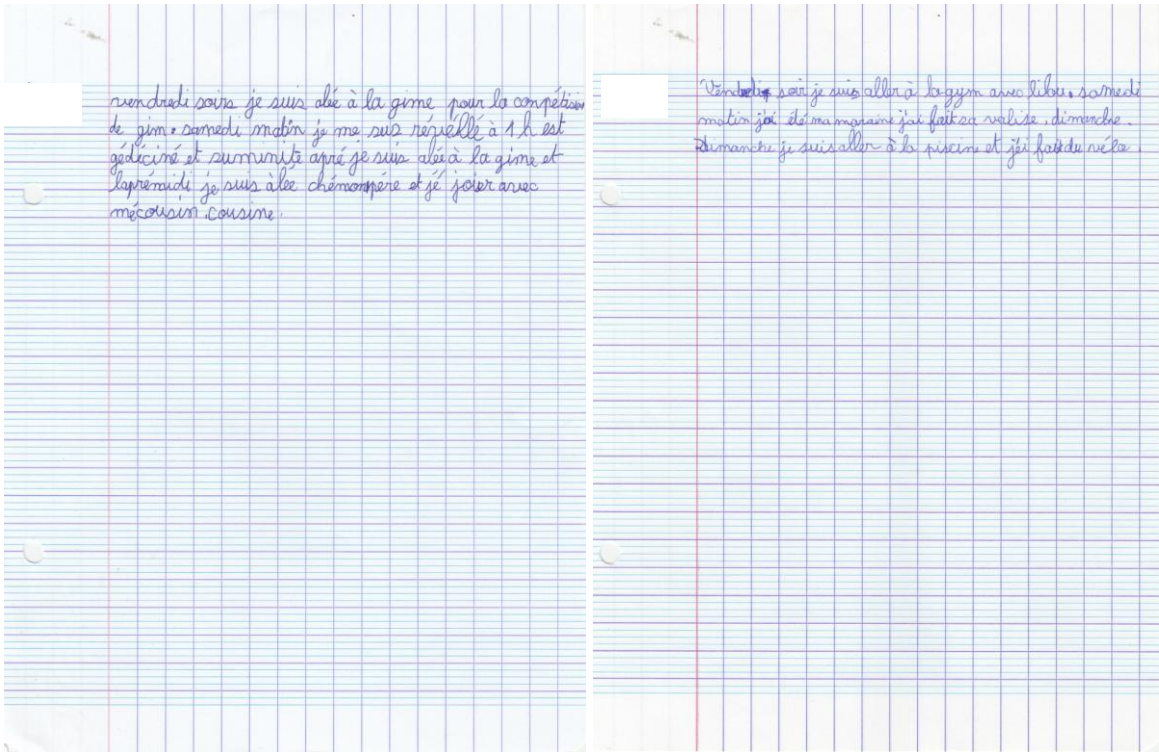 vendredi soirs je suis alée à la gime pour la compétision
de gim. samedi matin je me suis réviéllé à 1 h est
gédéciné et suminite apré je suis alée à la gime et
laprémidi je suis àlée chémonpére et jé joier avec
mécousin.cousine.
Vendredi soir je suis aller à la gym avec lilou. samedi
matin j'ai été ma maraine j'ai fait sa valise. dimanche.
Dimanche je suis aller à la piscine et j'éi fait du vélo.